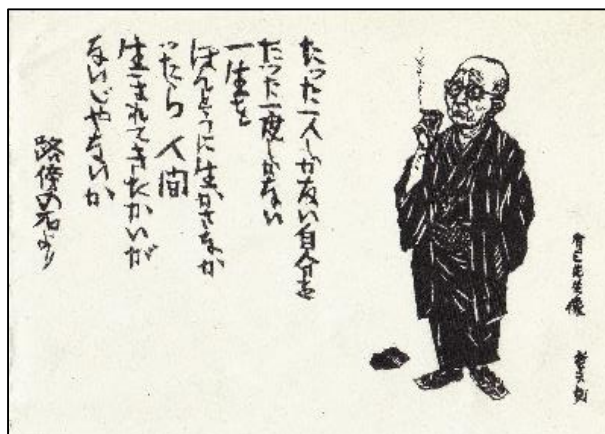 有三先生像
たった一人しかない自分を
たった一度しかない
一生を
ほんとうに生かさなか
ったら 人間
生まれてきたかいが
ないじゃないか
路傍の石より